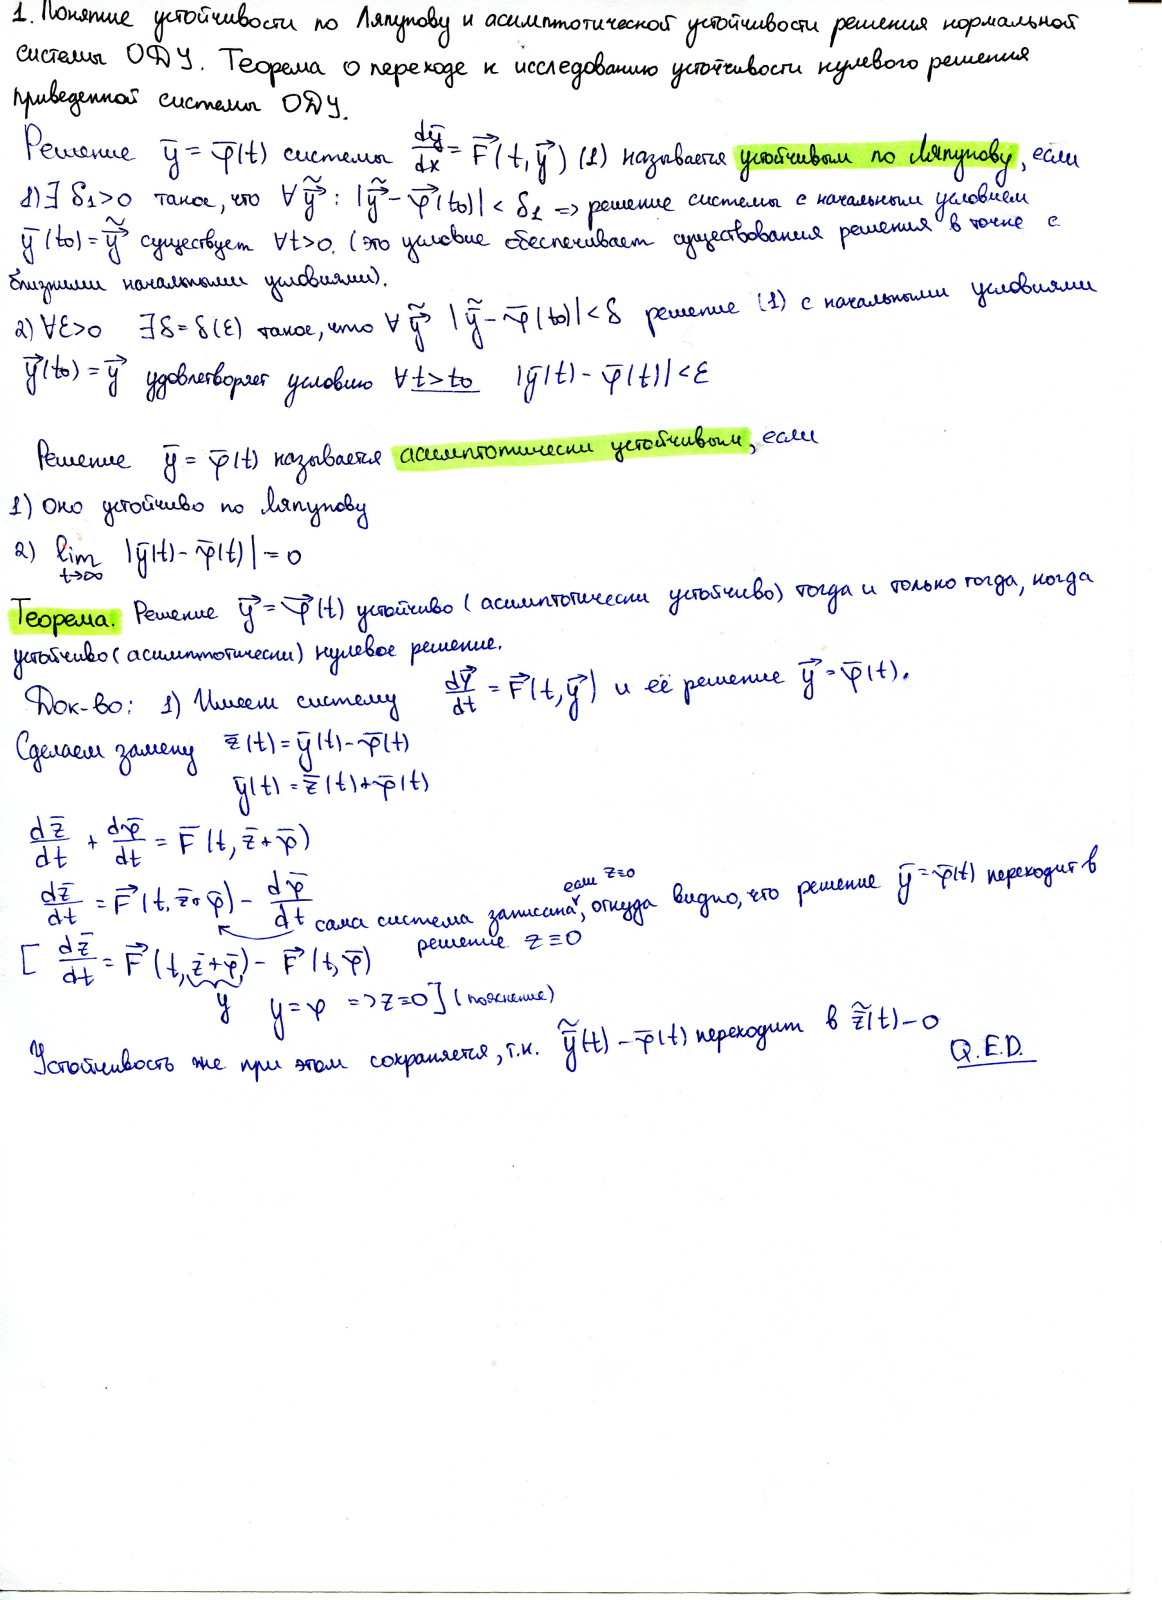 1. Понятие устойчивости по Ляпунову и асимптотической устойчивости решения нормальной
системы ОДУ. Теорема о переходе к исследованию устойчивости нулевого решения
приведенной системы ОДУ.
Решение ȳ = φ̄(t) системы dȳ/dx = F⃗(t, y⃗) (1) называется устойчивым по Ляпунову, если
1) ∃ δ₁>0 такое, что ∀ ỹ⃗ : |ỹ⃗ - φ⃗(t₀)| < δ₁ => решение системы с начальным условием
ȳ(t₀) = ỹ⃗ существует ∀t>0. (это условие обеспечивает существования решения в точке с
близкими начальными условиями).
2) ∀ε>0 ∃δ=δ(ε) такое, что ∀ ỹ⃗ |ỹ - φ̄(t₀)| < δ решение (1) с начальными условиями
y⃗(t₀) = y⃗ удовлетворяет условию ∀ t>t₀ |ȳ(t) - φ̄(t)| < ε
Решение ȳ = φ̄(t) называется асимптотически устойчивым, если
1) Оно устойчиво по Ляпунову
2) lim t→∞ |ȳ(t) - φ̄(t)| = 0
Теорема. Решение y⃗ = φ⃗(t) устойчиво (асимптотически устойчиво) тогда и только тогда, когда
устойчиво (асимптотически) нулевое решение.
Док-во: 1) Имеем систему dy⃗/dt = F⃗(t, y⃗) и её решение y⃗ = φ̄(t).
Сделаем замену z̄(t) = ȳ(t) - φ̄(t)
ȳ(t) = z̄(t) + φ̄(t)
dz̄/dt + dφ̄/dt = F̄(t, z̄+φ̄)
dz̄/dt = F⃗(t, z̄+φ̄) - dφ̄/dt сама система записана, если z=0, откуда видно, что решение ȳ = φ̄(t) переходит в
решение z≡0
[ dz̄/dt = F⃗(t, z̄+φ̄) - F⃗(t, φ̄)
y y=φ => z≡0 ] (пояснение)
Устойчивость же при этом сохраняется, т.к. ỹ(t) - φ̄(t) переходит в z̃(t) - 0
Q.E.D.